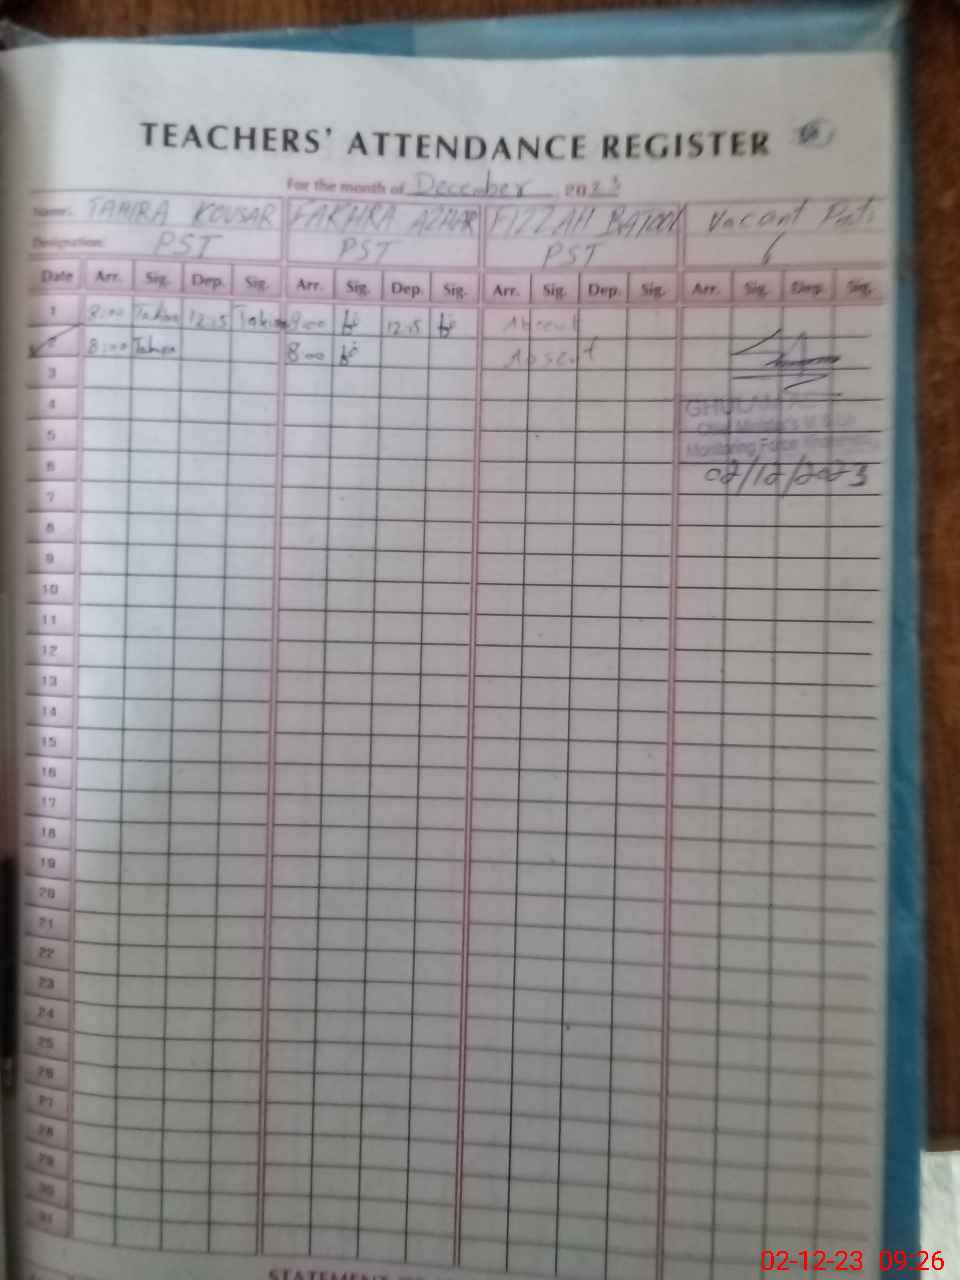 TEACHERS' ATTENDANCE REGISTER
For the month of December 2023
Name: TAHIRA KOUSAR FAKHRA AZHAR FIZZAH BATOOL Vacant Post:
Designation: PST PST PST 6
Date Arr. Sig. Dep. Sig. Arr. Sig. Dep. Sig. Arr. Sig. Dep. Sig. Arr. Sig. Dep. Sig.
1 8:00 Tahira 12:15 Tahira 12:15 Absent
2 8:00 Tahira 8:00 Absent
3
4
5
6
02/12/2023
7
8
9
10
11
12
13
14
15
16
17
18
19
20
21
22
23
24
25
26
27
28
29
30
31
STATEMENT
02-12-23 09:26